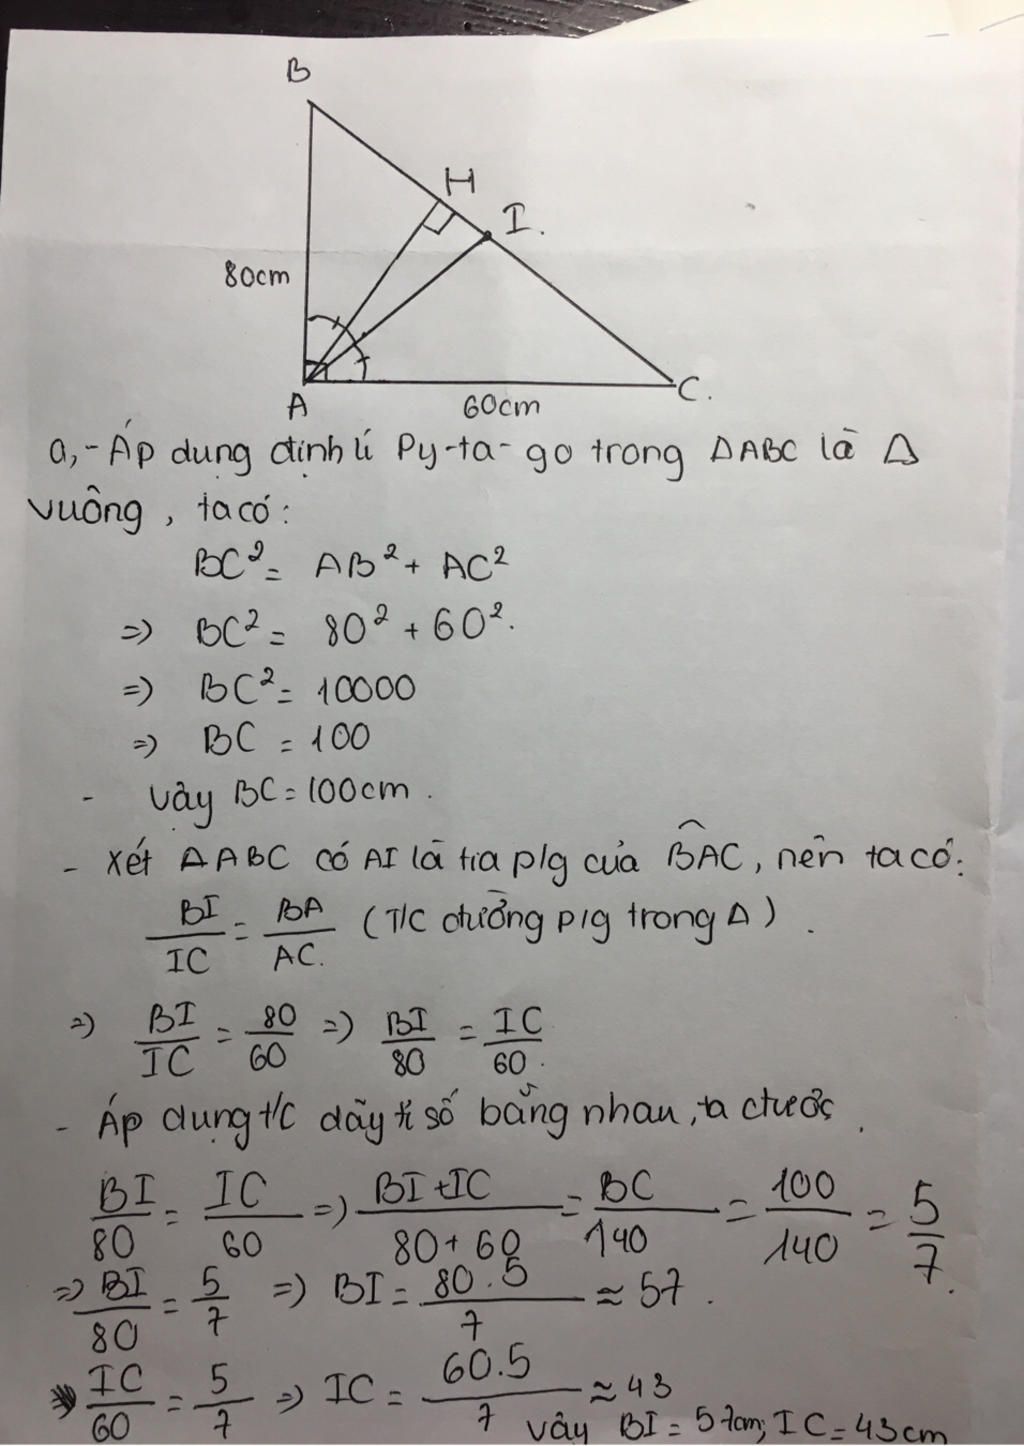 B
H
I.
80cm
A
60cm
C.
a,- Áp dụng định lí Py-ta-go trong ΔABC là Δ
vuông, ta có:
BC² = AB² + AC²
=> BC² = 80² + 60².
=> BC² = 10000
=> BC = 100
- Vậy BC = 100cm.
- Xét ΔABC có AI là tia p/g của BAC, nên ta có:
BI/IC = BA/AC. (T/C đường p/g trong Δ).
=> BI/IC = 80/60 => BI/80 = IC/60.
- Áp dụng t/c dãy tỉ số bằng nhau, ta được
BI/80 = IC/60 => BI+IC/80+60 = BC/140 = 100/140 = 5/7.
=> BI/80 = 5/7 => BI = 80.5/7 ≈ 57.
IC/60 = 5/7 => IC = 60.5/7 ≈ 43
Vậy BI = 57cm; IC = 43cm